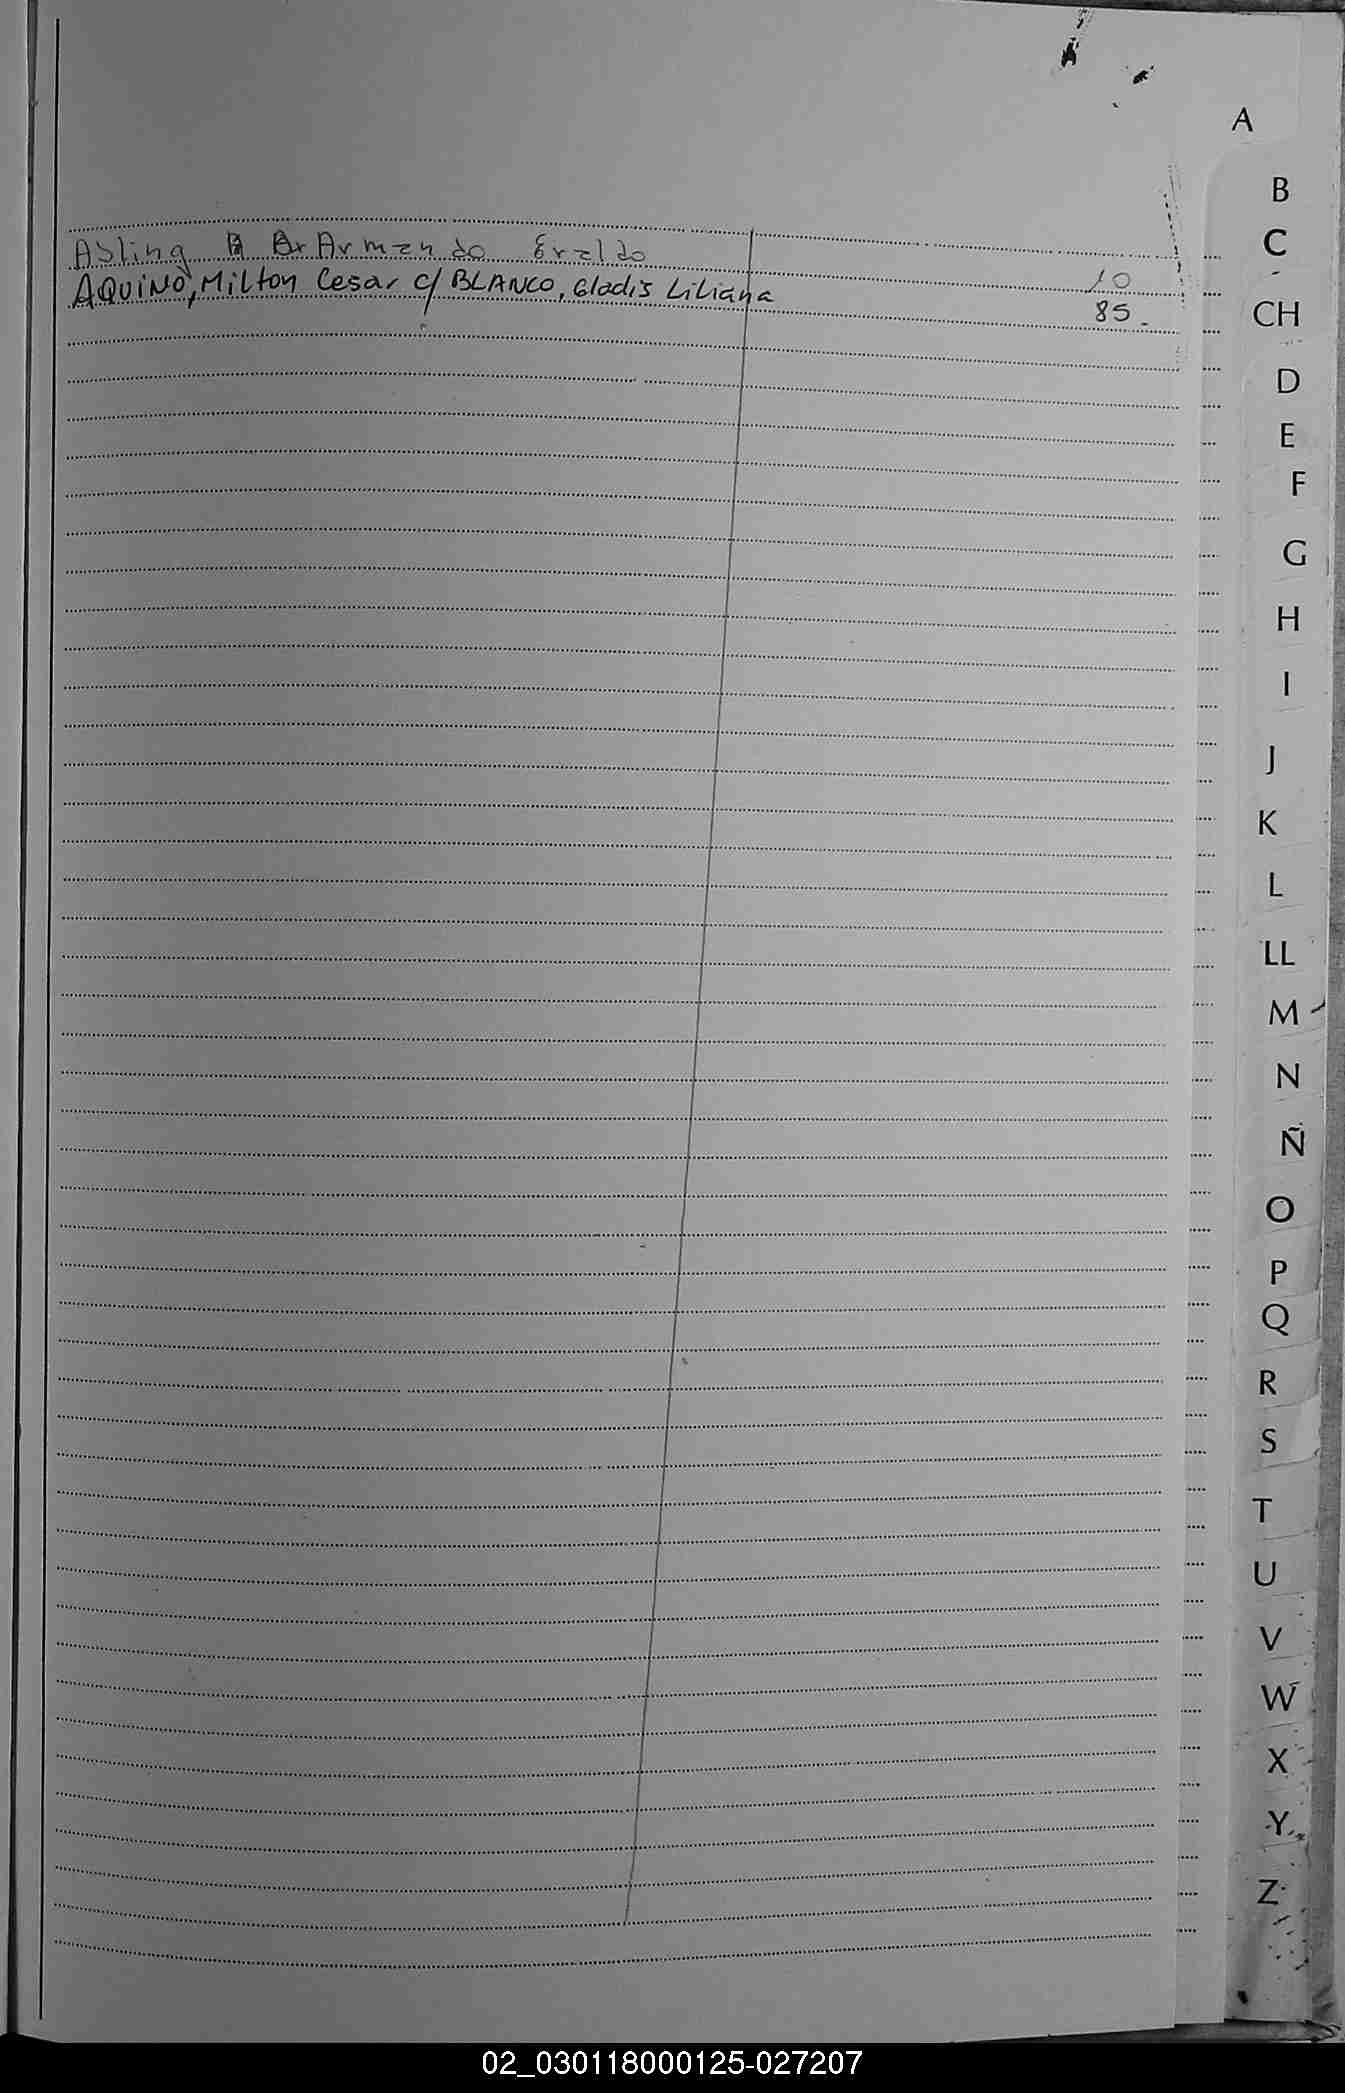 Abling Armando Eraldo 10
AQUINO, Milton Cesar c/ BLANCO, Gladis Liliana 85.
A
B
C
CH
D
E
F
G
H
I
J
K
L
LL
M
N
Ñ
O
P
Q
R
S
T
U
V
W
X
Y
Z
02_030118000125-027207